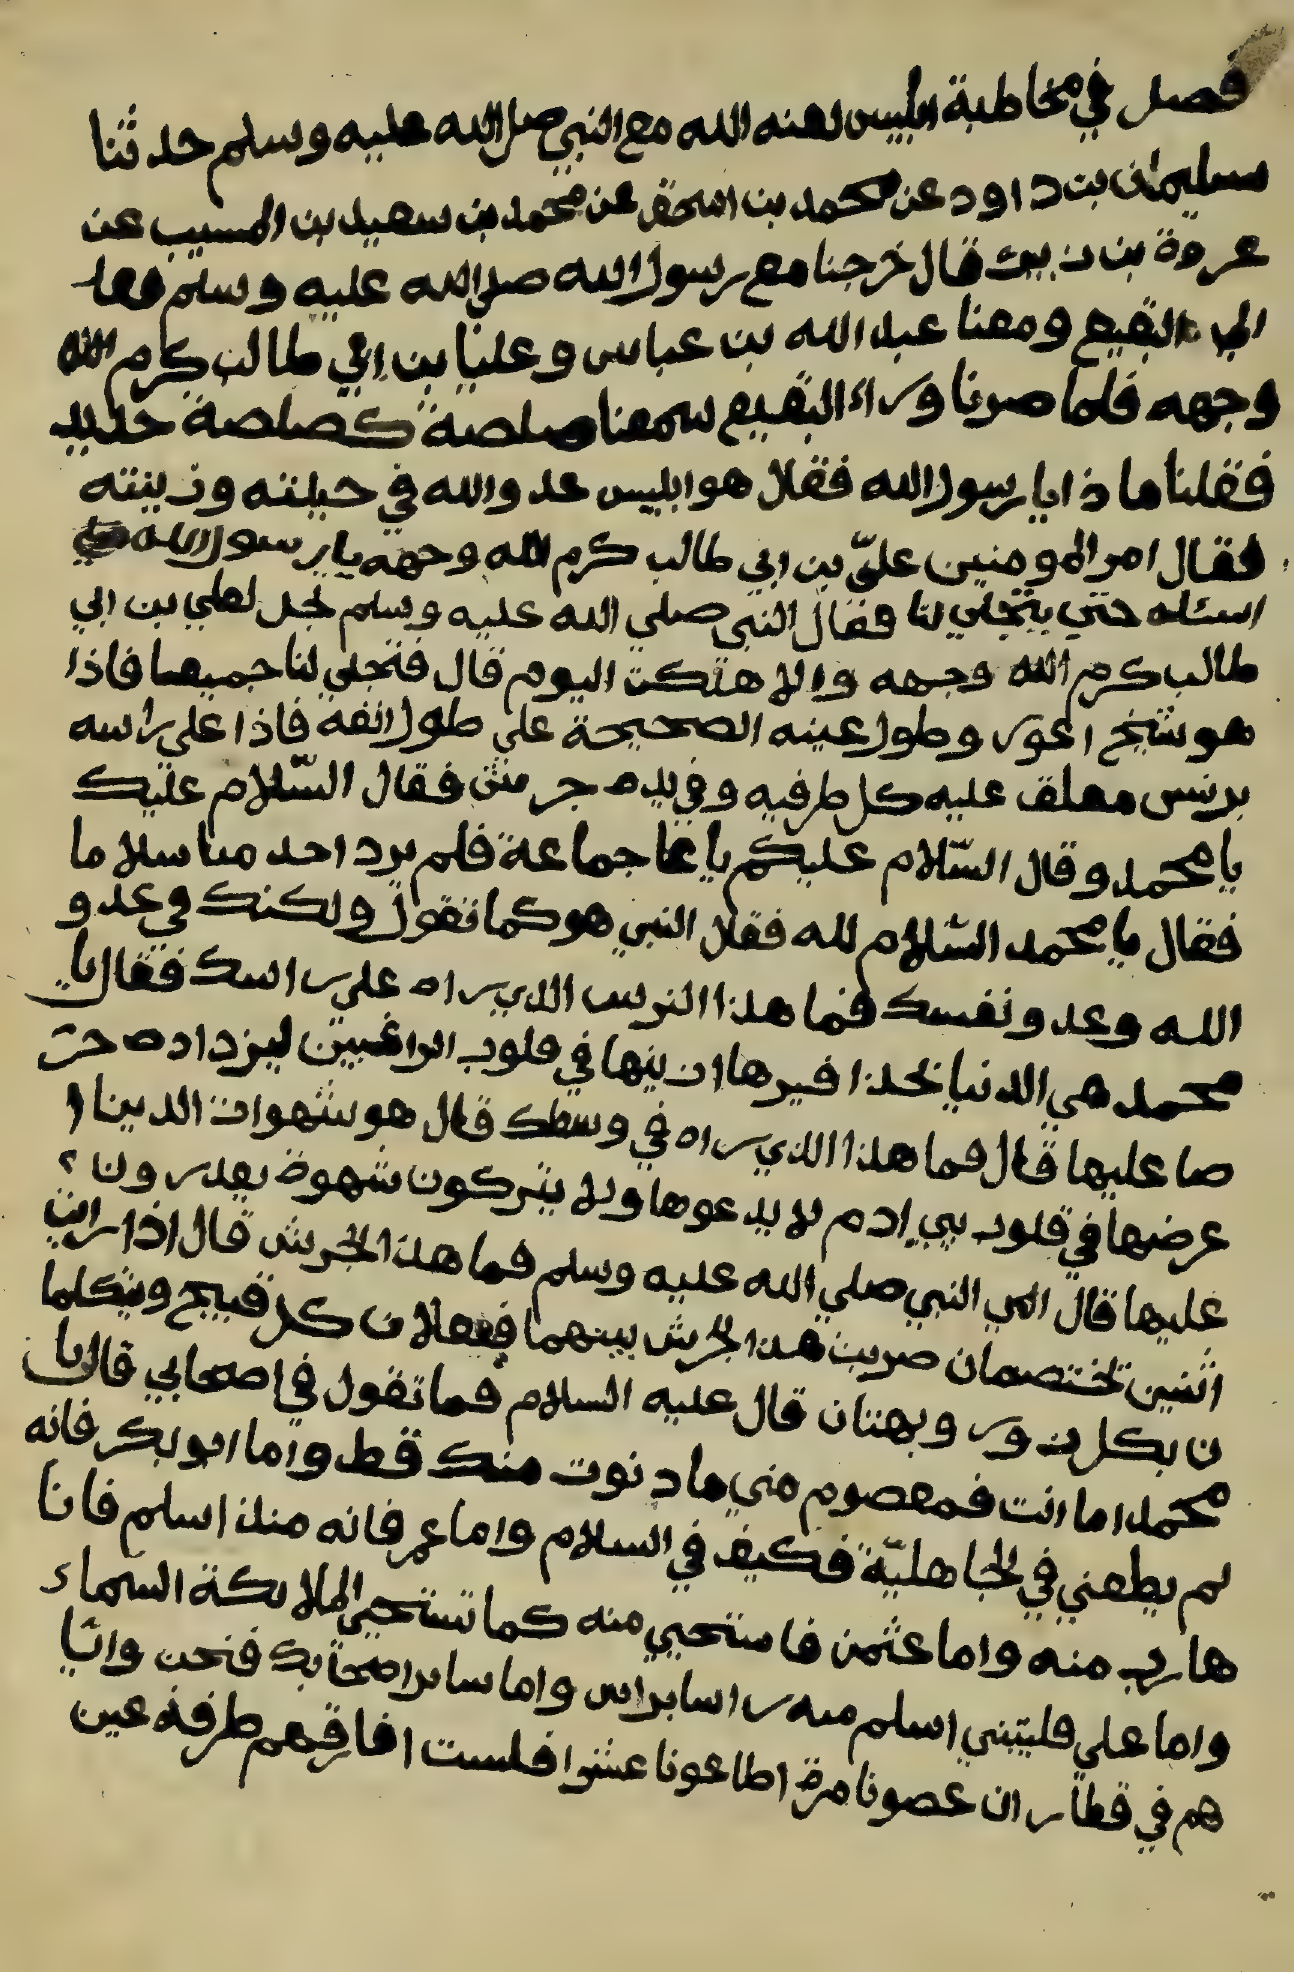 فصل في مخاطبة ابليس لعنه الله مع النبي صلى الله عليه وسلم حدثنا
سليمان بن داود عن محمد بن اسحق عن محمد بن سعيد بن المسيب عن
عروة بن زبير قال خرجنا مع رسول الله صلى الله عليه وسلم
الى البقيع ومعنا عبد الله بن عباس وعليا بن ابي طالب كرم الله
وجهه فلما صرنا وراء البقيع سمعنا صلصة كصلصة حديد
فقلنا ما ذا يا رسول الله فقلا هو ابليس عدو الله في حيلته وزينته
فقال امر المومنين عليّ بن ابي طالب كرم الله وجهه يا رسول الله
اسئله حتي يتجلي لنا فقال النبي صلي الله عليه وسلم لعلي بن ابي
طالب كرم الله وجهه والا هتكت اليوم قال فتجلي لنا جميعا فاذا
هو شيخ اعور وطول عينه الصحيحة علي طول انفه فاذا علي راسه
برنس معلق عليه كل طرفيه وفي يده جرمش فقال السّلام عليك
يا محمد وقال السّلام عليكم يا جماعة فلم يرد احد منا سلاما
فقال يا محمد السّلام لله فقلا النبي هو كما تقول ولكنك عدو
الله وعدو نفسك فما هذا الذي راه علي راسك فقال يا
محمد هي الدنيا في قلوب الراغبين ليزداده حر
صا عليها قال فما هذا الذي راه في وسطك قال هو شهوات الدينا ا
عرضها في قلوب بني ادم لا يدعوها ولا يتركون شهوة يقدرون
عليها قال النبي صلي الله عليه وسلم فما هذا الجرش قال اذا رايت
اثنين تختصمان ضربت هذا الجرش بينهما فيفعلان كل قبيح ويتكلما
ن بكل زور وبهتان قال عليه السلام فما تقول في اصحابي قال يا
محمد اما انت فمعصوم مني ما دنوت منك قط واما ابو بكر فانه
لم يطعني في الجاهليّة فكيف في السلام واما عمر فانه منذ اسلم فانا
هارب منه واما عثمن فاستحيي منه كما تستحيي الملائكة السماء
واما علي فليتني اسلم منه راسا براس واما ساير اصحابك فنحن وايّا
هم في قطار ان عصونا مرة اطاعونا عشرا فلست افارقهم طرفة عين